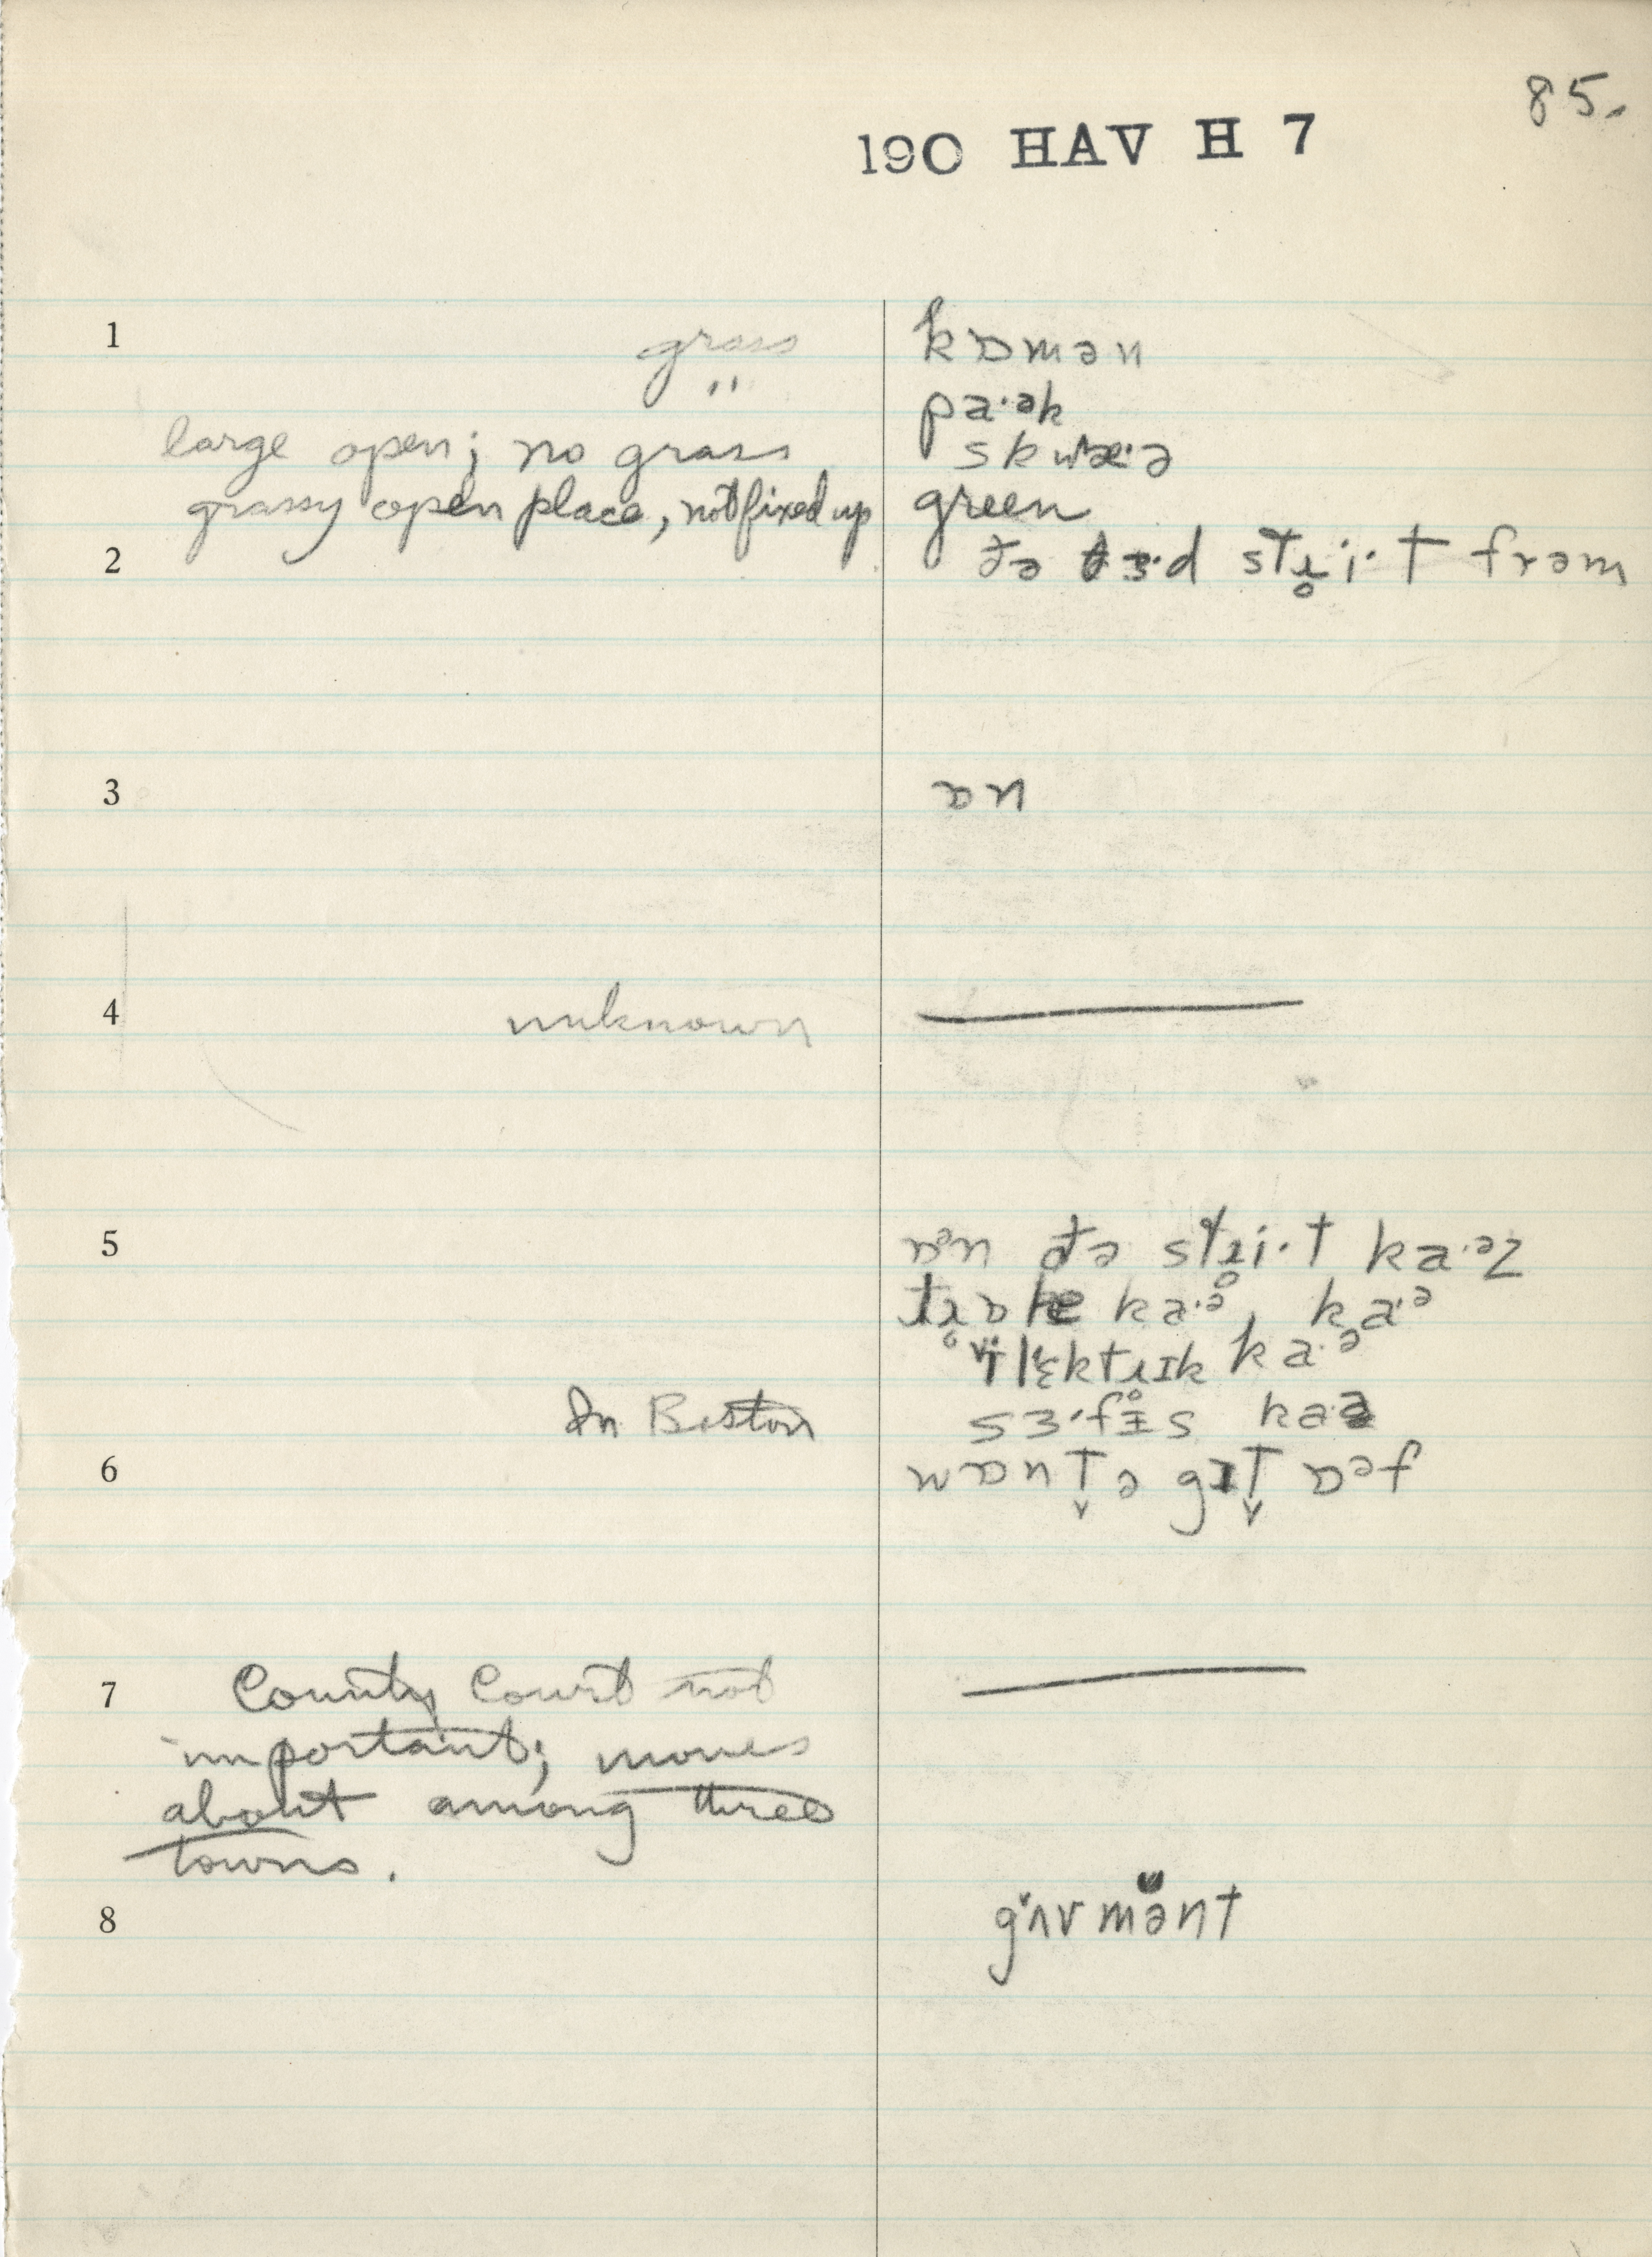 85.
190 HAV H 7
1 grass kɒmən
" pa·ək
large open; no grass skwæ·ə
grassy open place, not fixed up green
2 ðə θɜ·d stɹ̥i·t frəm
3 ɒn
4 unknown
5 ɒᵊn ðə stɹ̥i·t ka·ᵊz
ka·ᵊ, ka·ᵊ
ka·ᵊ
In Boston
6 wɒnt̬ə gɪt̬ ɒᵊf
7 County Court not
important; moves
about among three
towns.
8 gʌvmənt